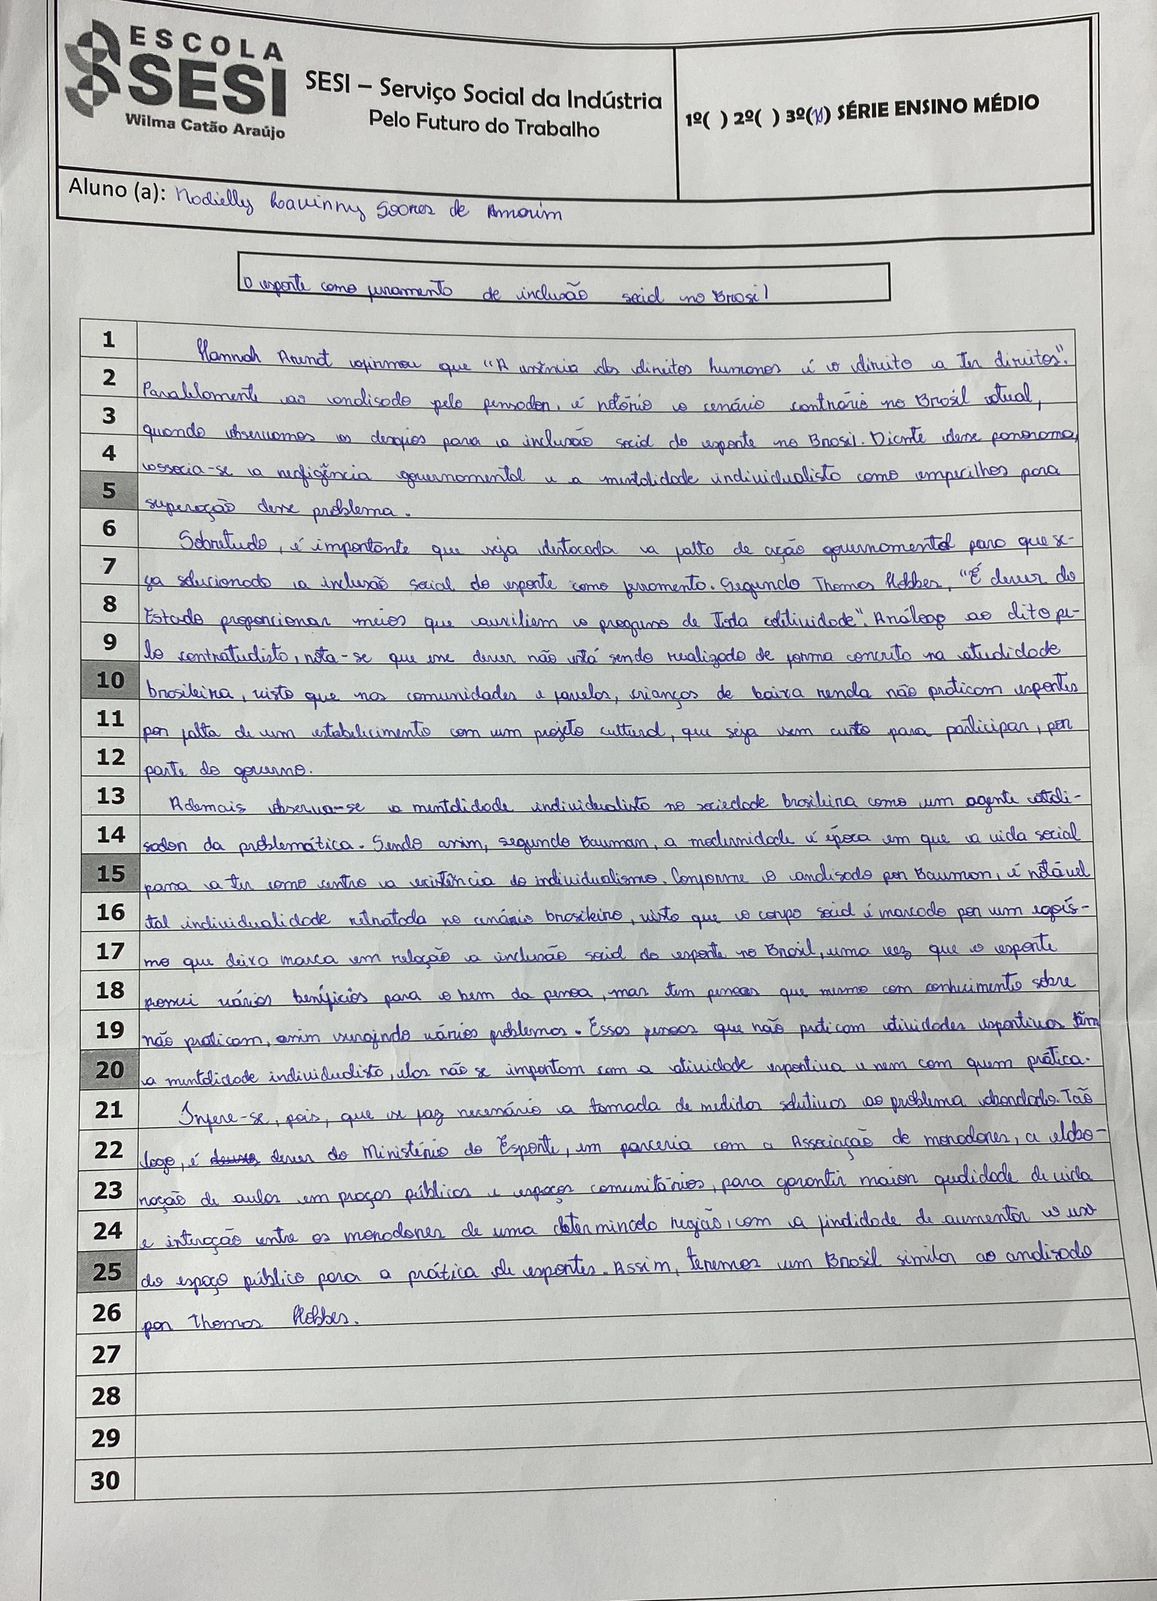 ESCOLA
SESI
Wilma Catão Araújo
SESI – Serviço Social da Indústria
Pelo Futuro do Trabalho
1º( ) 2º( ) 3º(X) SÉRIE ENSINO MÉDIO
Aluno (a): Nadielly Lavinny Soares de Amorim
O esporte como ferramenta de inclusão social no Brasil
1 Hannah Arendt afirmou que "A essência dos direitos humanos é o direito a ter direitos".
2 Paralelamente ao analisado pela pensador, é notório o cenário contrário no Brasil atual,
3 quando observamos os desafios para a inclusão social do esporte no Brasil. Diante desse panorama,
4 associa-se a negligência governamental e a mentalidade individualista como empecilhos para
5 superação desse problema.
6 Sobretudo, é importante que seja destacada a falta de ação governamental para que se-
7 ja solucionado a inclusão social do esporte como ferramenta. Segundo Thomas Hobbes, "É dever do
8 Estado proporcionar meios que auxiliem o progresso de toda coletividade". Análogo ao dito pe-
9 lo contratualista, nota-se que esse dever não está sendo realizado de forma concreta na atualidade
10 brasileira, visto que nas comunidades e favelas, crianças de baixa renda não praticam esportes
11 por falta de um estabelecimento com um projeto cultural, que seja sem custo para participar, por
12 parte do governo.
13 Ademais observa-se a mentalidade individualista na sociedade brasileira como um agente catali-
14 sador da problemática. Sendo assim, segundo Bauman, a modernidade é época em que a vida social
15 passa a ter como centro a existência do individualismo. Conforme o analisado por Bauman, é notável
16 tal individualidade retratada no cenário brasileiro, visto que o corpo social é marcado por um egoís-
17 mo que deixa marca em relação a inclusão social do esporte no Brasil, uma vez que o esporte
18 possui vários benefícios para o bem da pessoa, mas tem pessoas que mesmo com conhecimento sobre
19 não praticam, assim surgindo vários problemas. Essas pessoas que não praticam atividades esportivas têm
20 a mentalidade individualista, elas não se importam com a atividade esportiva e nem com quem prática.
21 Infere-se, pois, que se faz necessário a tomada de medidas solutivas ao problema abordado. Tão
22 logo, é dever do Ministério do Esporte, em parceria com a Associação de moradores, a elabo-
23 ração de aulas em praças públicas e espaços comunitários, para garantir maior qualidade de vida
24 e interação entre os moradores de uma determinada região, com a finalidade de aumentar o uso
25 do espaço público para a prática de esportes. Assim, teremos um Brasil similar ao analisado
26 por Thomas Hobbes.
27
28
29
30